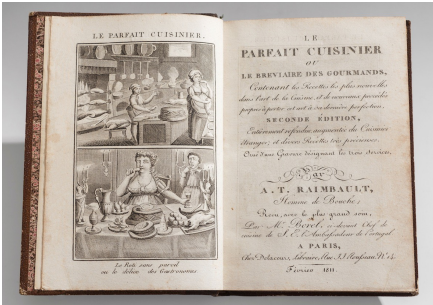 LE PARFAIT CUISINIER.
Le Roti sans pareil
ou le délice des Gastronomes
LE
PARFAIT CUISINIER
OU
LE BREVIAIRE DES GOURMANDS,
Contenant les Recettes les plus nouvelles
dans l'art de la Cuisine, et de nouveaux procédés
propres à porter cet art à sa dernière perfection,
SECONDE ÉDITION,
Entièrement refondue, augmentée du Cuisinier
étranger, et divers Recettes très précieuses.
Orné d'une Gravure désignant les trois Services,
Par
A. T. RAIMBAULT,
Homme de Bouche;
Revu, avec le plus grand soin,
Par Mr. Borel, ci-devant Chef de
cuisine de S. E. l'Ambassadeur de Portugal
A PARIS,
Chez Delacour, Libraire, Rue J.J. Rousseau, No. 14.
Février 1811.